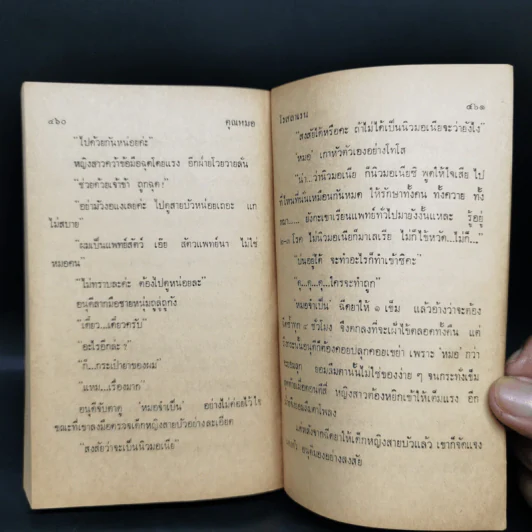 ๔๖๐ คุณหมอ
"ไปด้วยกันหน่อยค่ะ"
หญิงสาวคว้าข้อมือฉุดโดยแรง อีกฝ่ายโวยวายลั่น
"ช่วยด้วยเจ้าข้า ถูกฉุด!"
"อย่ามัวงอแงเลยค่ะ ไปดูสายบัวหน่อยเถอะ แก
ไม่สบาย"
"ผมเป็นแพทย์สัตว์ เอ๊ย สัตวแพทย์นา ไม่ใช่
หมอคน"
"ไม่ทราบละค่ะ ต้องไปดูหน่อยละ"
อนุดีลากมือชายหนุ่มถูลู่ถูกัง
"เดี๋ยว...เดี๋ยวครับ"
"อะไรอีกล่ะ?"
"ก็...กระเป๋ายาของผม"
"แหม...เรื่องมาก"
อนุดีจับตาดู 'หมอจำเป็น' อย่างไม่ค่อยไว้ใจ
ขณะที่เขาลงมือตรวจเด็กหญิงสายบัวอย่างละเอียด
"สงสัยว่าจะเป็นนิวมอเนีย"
๔๖๑
"สงสัยได้หรือคะ ถ้าไม่ได้เป็นนิวมอเนียจะว่ายังไง"
'หมอ' เกาหัวตัวเองอย่างโทโส
"น่า...ว่านิวมอเนีย ก็นิวมอเนียซิ พูดให้ใจเสีย ไป
ที่ไหนที่นั่นเหมือนกันหมด ให้รักษาทั้งคน ทั้งควาย ทั้ง
หมา..... ยังกะเขาเรียนแพทย์ทั่วไปมายังงั้นแหละ รู้อยู่
๒-๓ โรค ไม่นิวมอเนียก็มาเลเรีย ไม่ก็ไข้หวัด...ไม่ก็..."
"บ่นอยู่ได้ จะทำอะไรก็ทำเข้าซิคะ"
"ดุ...ดุ...ดุ...ใครจะทำถูก"
'หมอจำเป็น' ฉีดยาให้ ๑ เข็ม แล้วอ้างว่าจะต้อง
ชั่วโมง จึงตกลงที่จะเฝ้าไข้ตลอดทั้งคืน แต่
อนุดีก็ต้องคอยปลุกคอยเขย่า เพราะ 'หมอ' กว่า
ยอมลืมตานั้นไม่ใช่ของง่าย ๆ จนกระทั่งเข็ม
หญิงสาวต้องหยิกเข้าให้เต็มแรง อีก
หลังจากฉีดยาให้เด็กหญิงสายบัวแล้ว เขาก็จัดแจง
อนุดีมองอย่างสงสัย